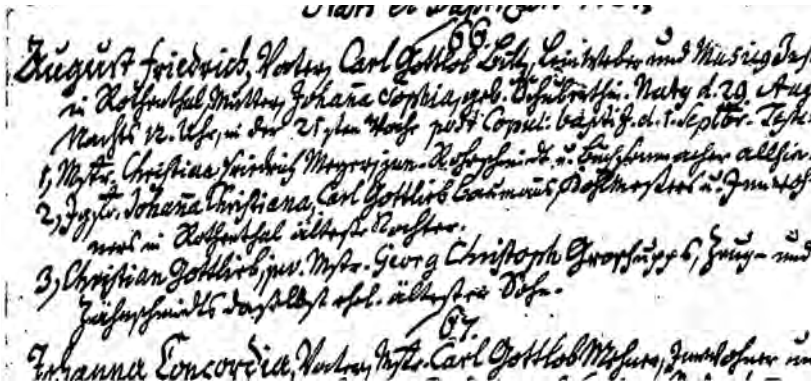 66.
August Friedrich, Vater, Carl Gottlob Bilz, Leinweber und Musicg
in Rothenthal, Mutter, Johaña Sophia, geb. Naty d. 29 Aug
Nachts 12. Uhr, in der 21sten Woche post Copul: baptiz. d. 1. Septbr. Test:
1, Mstr. Christian Friedrich Meyer, jun. Rohrschmidt u. allhier.
2, Jgfr. Johaña Christiana, Carl Gottlieb Baumañs, u. Inwoh
ners in Rothenthal älteste Tochter.
3, Christian Gottlieb, juv. Mstr. Georg Christoph Groschupps, Zeug- und
Zahnschmidts daselbst ehel. ältester Sohn.
67.
Johanna Concordia, Vater, Mstr. Carl Gottlob Mehner, Innwohner un